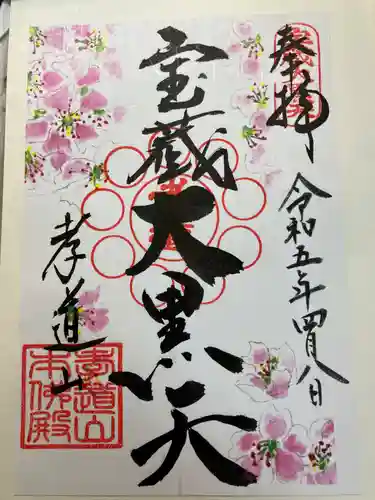 奉拝
令和五年四月八日
宝蔵大黒天
孝道山
孝道山
本佛殿